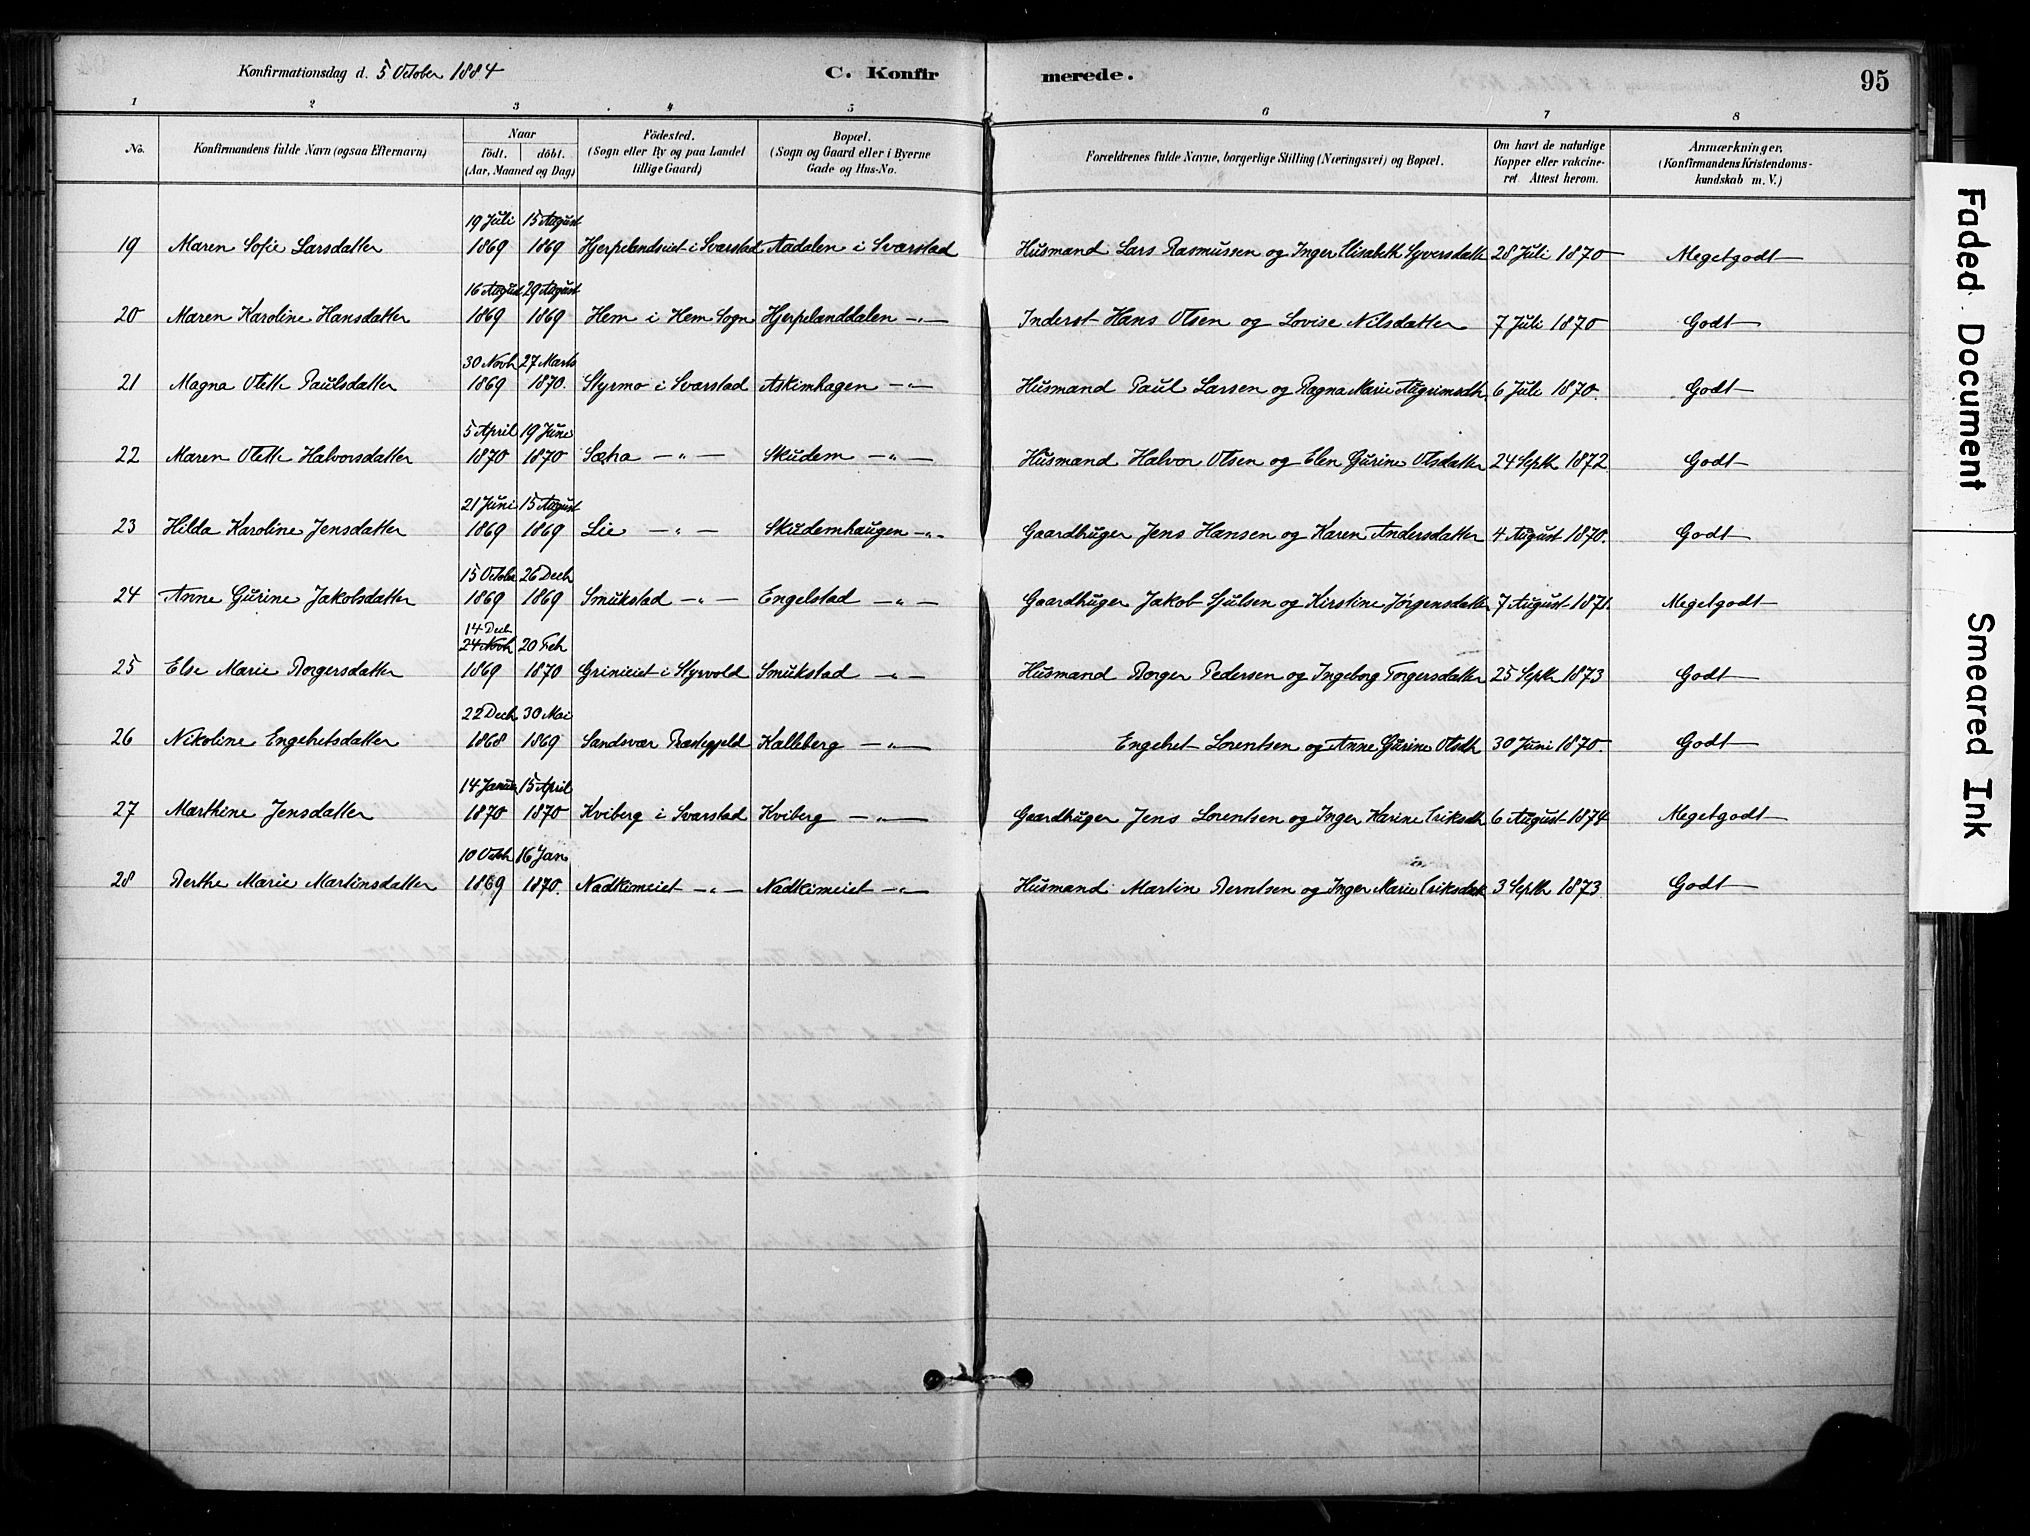 Konfirmationsdag d. 5 October 1884 C. Konfirmerede. 95
1 2 3 4 5 6 7 8
No. Konfirmandens fulde Navn (ogsaa Efternavn) Naar födt. döbt. (Aar, Maaned og Dag) Födested. (Sogn eller By og paa Landet tillige Gaard) Bopæl. (Sogn og Gaard eller i Byerne Gade og Hus-No. Forældrenes fulde Navne, borgerlige Stilling (Næringsvei) og Bopæl. Om havt de naturlige Kopper eller vakcineret. Attest herom. Anmærkninger, (Konfirmandens Kristendomskundskab m. V.)
19 Maren Sofie Larsdatter 19 Juli 1869 15 August 1869 Hjerpelandseiet i Svarstad Aadalen i Svarstad Husmand Lars Rasmussen og Inger Elisabeth Syversdatt 28 Juli 1870 Megetgodt
20 Maren Karoline Hansdatter 16 August 1869 29 August 1869 Hem i Hem Sogn Hjerpelanddalen -„- Inderst Hans Olsen og Lovise Nilsdatter 7 Juli 1870 Godt
21 Magna Olette Paulsdatter 30 Novb 1869 27 Marts 1870. Styrmo i Svarstad Askimhagen -„- Husmand Paul Larsen og Ragna Marie Augrimsdtr. 6 Juli 1870. Godt
22 Maren Olette Halvorsdatter 5 April 1870 19 Juni 1870 Sæha -„- Skudem -„- Husmand Halvor Olsen og Elen Gurine Olsdatter 24 Septb 1872 Godt
23 Hilda Karoline Jensdatter 21 Juni 1869 15 August 1869 Lie -„- Skudemhaugen -„- Gaardbruger Jens Hansen og Karen Andersdatter 4 August 1870. Godt
24 Anne Gurine Jakobsdatter 15 Octobr 1869 26 Decb 1869 Smukstad -„- Engelstad -„- Gaardbruger Jakob Hjulsen og Kirstine Jörgensdatter 7 August 1871. Megetgodt
25 Else Marie Borgersdatter 14 Decb 24 Novb 1869 20 Feb 1870 Grinieiet i Styrvold Smukstad -„- Husmand Borger Pedersen og Ingeborg Torgersdatter 25 Septb 1873 Godt
26 Nikoline Engebretsdatter 22 Decb 1868 30 Mai 1869 Sandsvær Præstegjeld Kalleberg -„- Engebret Lorentsen og Anne Gurine Olsdtr 30 Juni 1870. Godt
27 Marthine Jensdatter 14 Januar 1870 15 April 1870 Kviberg i Svarstad Kviberg -„- Gaardbruger Jens Lorentsen og Inger Karine Eriksdtr 6 August 1874 Megetgodt
28 Berthe Marie Martinsdatter 10 Octb 1869 16 Jan 1870. Nadkimeiet -„- Nadkimeiet -„- Husmand Martin Berntsen og Inger Marie Eriksdatt 3 Septb 1873. Godt
Faded Document
Smeared Ink